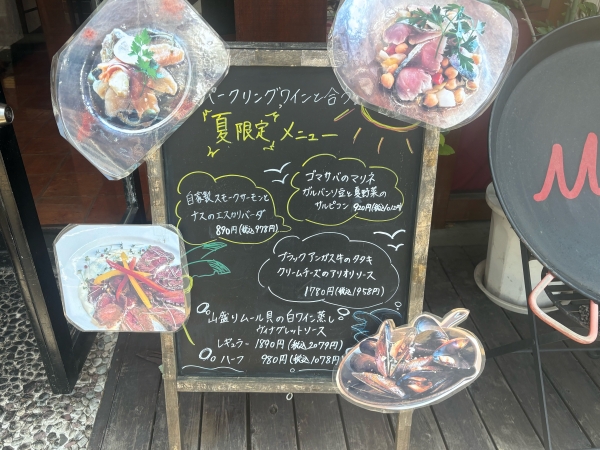 パークリングワインと合う
夏限定メニュー
自家製スモークサーモンと
ナスのエスカリバーダ
890円(税込978円)
ゴマサバのマリネ
ガルバンソ豆と夏野菜の
サルピコン 920円(税込1012円)
ブラックアンガス牛のタタキ
クリームチーズのアリオリソース
1780円(税込1958円)
山盛りムール貝の白ワイン蒸し
ヴィナグレットソース
レギュラー 1890円(税込2079円)
ハーフ 980円(税込1078円)
M